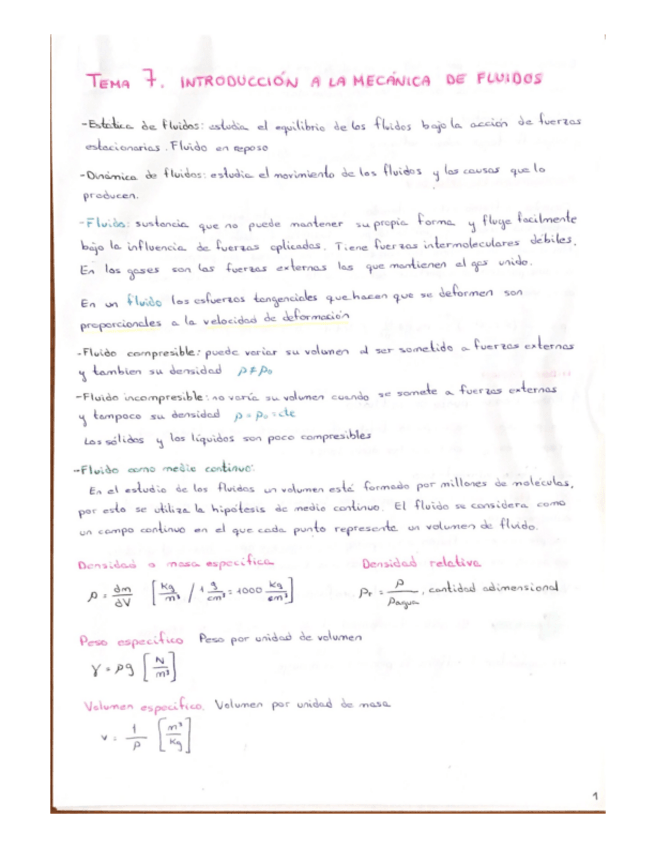 TEMA 7. INTRODUCCIÓN A LA MECÁNICA DE FLUIDOS
-Estática de fluidos: estudia el equilibrio de los fluidos bajo la acción de fuerzas
estacionarias. Fluido en reposo
-Dinámica de fluidos: estudia el movimiento de los fluidos y las causas que lo
producen.
-Fluido: sustancia que no puede mantener su propia forma y fluye facilmente
bajo la influencia de fuerzas aplicadas. Tiene fuerzas intermoleculares débiles.
En los gases son las fuerzas externas las que mantienen el gas unido.
En un fluido los esfuerzos tangenciales que hacen que se deformen son
proporcionales a la velocidad de deformación
-Fluido compresible: puede variar su volumen al ser sometido a fuerzas externas
y tambien su densidad ρ≠ρ₀
-Fluido incompresible: no varía su volumen cuando se somete a fuerzas externas
y tampoco su densidad ρ=ρ₀=cte
Los sólidos y los líquidos son poco compresibles
-Fluido como medio continuo:
En el estudio de los fluidos un volumen está formado por millones de moléculas,
por esto se utiliza la hipótesis de medio continuo. El fluido se considera como
un campo continuo en el que cada punto representa un volumen de fluido.
Densidad o masa específica
ρ = dm/dV [kg/m³ / 1 g/cm³ = 1000 kg/cm³]
Densidad relativa
ρr = ρ/ρagua, cantidad adimensional
Peso específico Peso por unidad de volumen
γ = ρg [N/m³]
Volumen específico. Volumen por unidad de masa
v = 1/ρ [m³/kg]
1